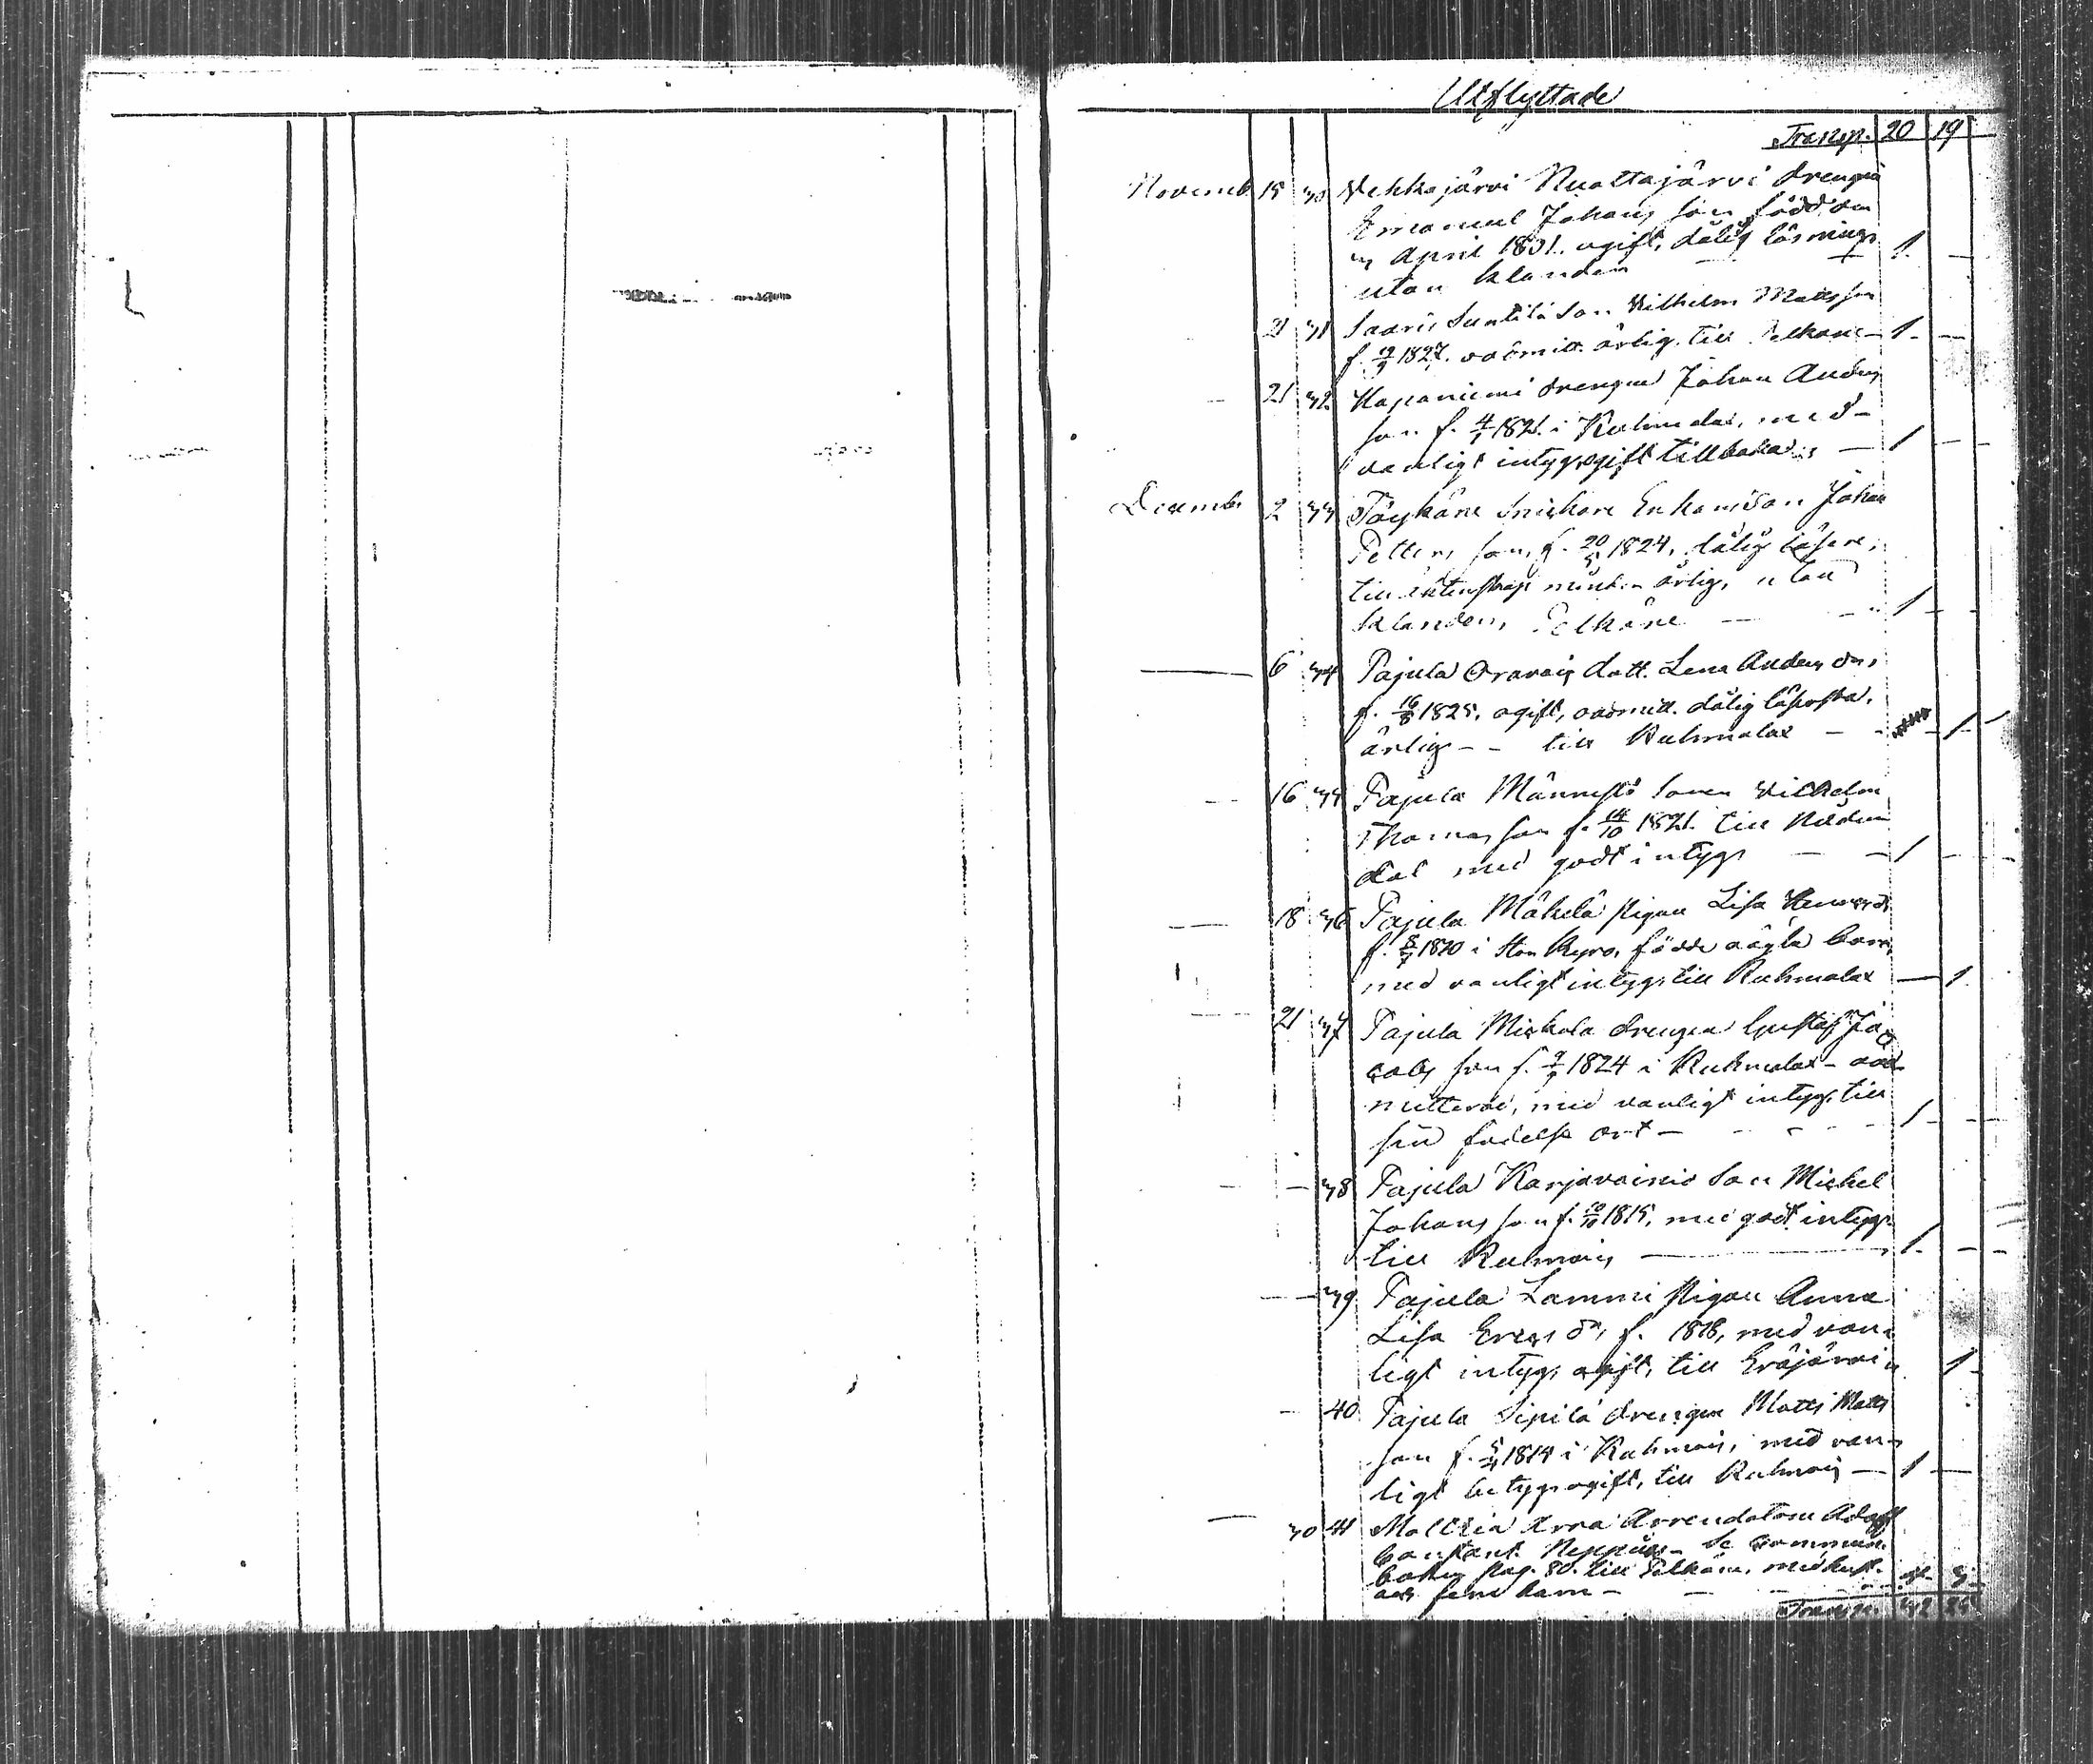 Utflyttade
Transp. 20 19
Novemb. 15 30 Vehkajärvi Nuottajärvi drengen
Emanuel Johans son född den
3 April 1801. ogift, dålig läsning
utan klander 1 -
21 31 Saaris Suntila Son Vilhelm Matts son
f. 1827. vaömitt. ärlig. till Pelkäne 1 -
21 32 Haponiemi drengen Johan Anders
son f. 4/1 1821. i Kuhmalax, med
vanligt intyg, ogift tillbaka 1 -
Decemb. 2 33 Pöykäne Snickare Enkans Son Johan
Petters son, f. 20/5 1824, dålig läsare,
till ärlig, utan
klander, Pelkäne 1 -
6 34 Pajula Oravais dott. Lena Anders dr,
f. 16/8 1825. ogift, vaömitt. dålig läserska.
ärlig - - till Kuhmalax - 1
16 35 Pajula Männistö Sonen Vilhelm
Thomas son f. 14/10 1821. till Nåden
dal med godt intyg 1 -
18 36 Pajula Mäkelä pigan Lisa Henrics dr
f. 1820 i Stor Kyro, födde oägta barn,
med vanligt intyg, till Kuhmalax - 1
21 37 Pajula Mickola drengen Gustaf Ja
cobs son f. 1824 i Kuhmalax - vaö
mitterad, med vanligt intyg, till
sin födelse ort - 1 -
- 38 Pajula Karjavainio Son Michel
Johans son f. 1815, med godt intyg
till Kuhmois 1 -
- 39 Pajula Lammi pigan Anna
Lisa Erics dr, f. 1818, med van-
ligt intyg, ogift, till Eräjärvi 1
- 40 Pajula Sipilä drengen Matts Matts
son f. 1814 i Kuhmois, med van-
ligt betyg, ogift, till Kuhmois 1 -
30 41 Arra Arrendatorn Adolf
Constant. Se commun.
boken pag. 80. till Pelkäne, med hust.
och fem barn -
Transp. 32 25